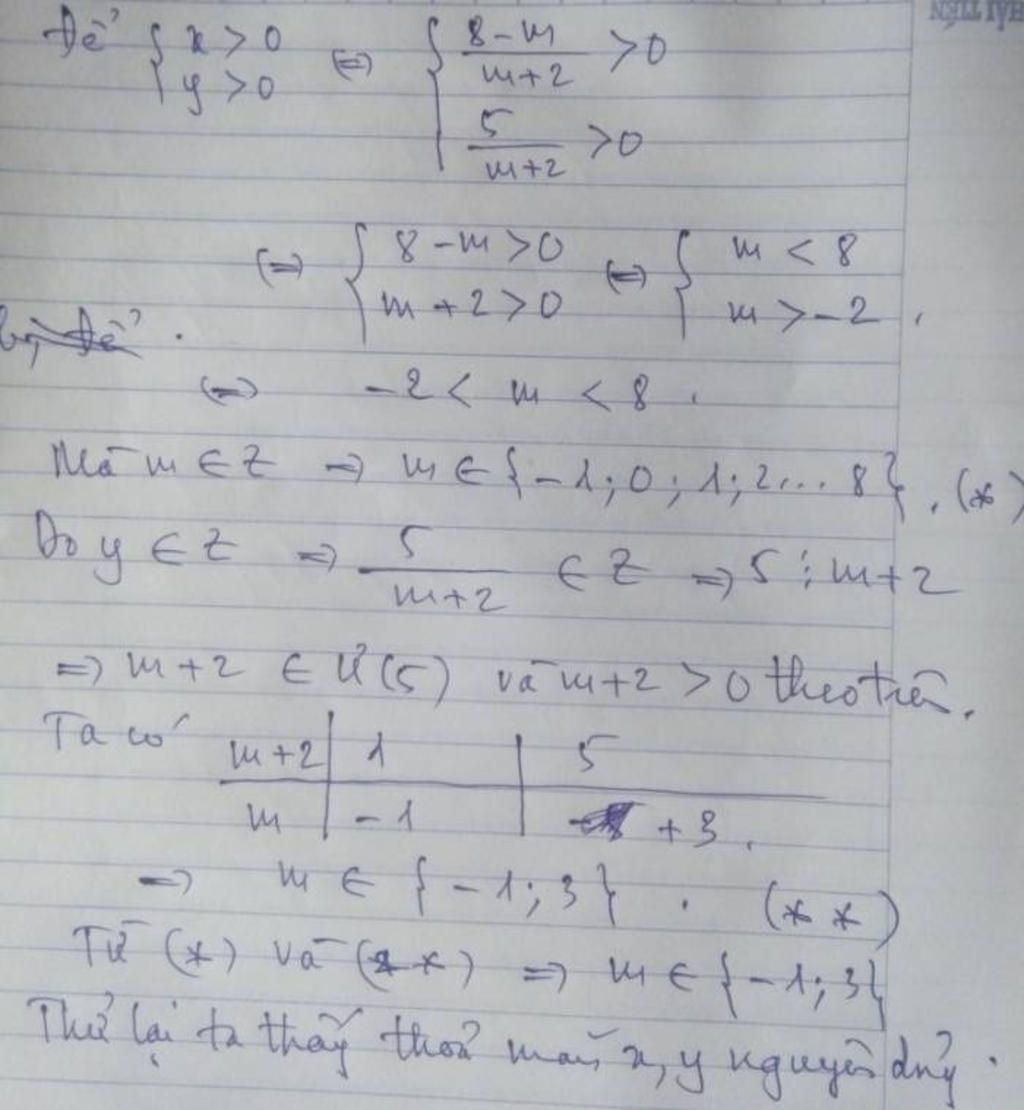 Để { x > 0 ; y > 0 ⇔ { (8-m)/(m+2) > 0 ; 5/(m+2) > 0
⇔ { 8-m > 0 ; m+2 > 0 ⇔ { m < 8 ; m > -2 .
⇔ -2 < m < 8 .
Mà m ∈ Z ⇒ m ∈ {-1; 0; 1; 2... 8}. (*)
Do y ∈ Z ⇒ 5/(m+2) ∈ Z ⇒ 5 ⋮ m+2
⇒ m+2 ∈ Ư(5) và m+2 > 0 theo trên.
Ta có
m+2 | 1 | 5
m | -1 | +3.
⇒ m ∈ {-1; 3} . (**)
Từ (*) và (**) ⇒ m ∈ {-1; 3}
Thử lại ta thấy thoả mãn x, y nguyên